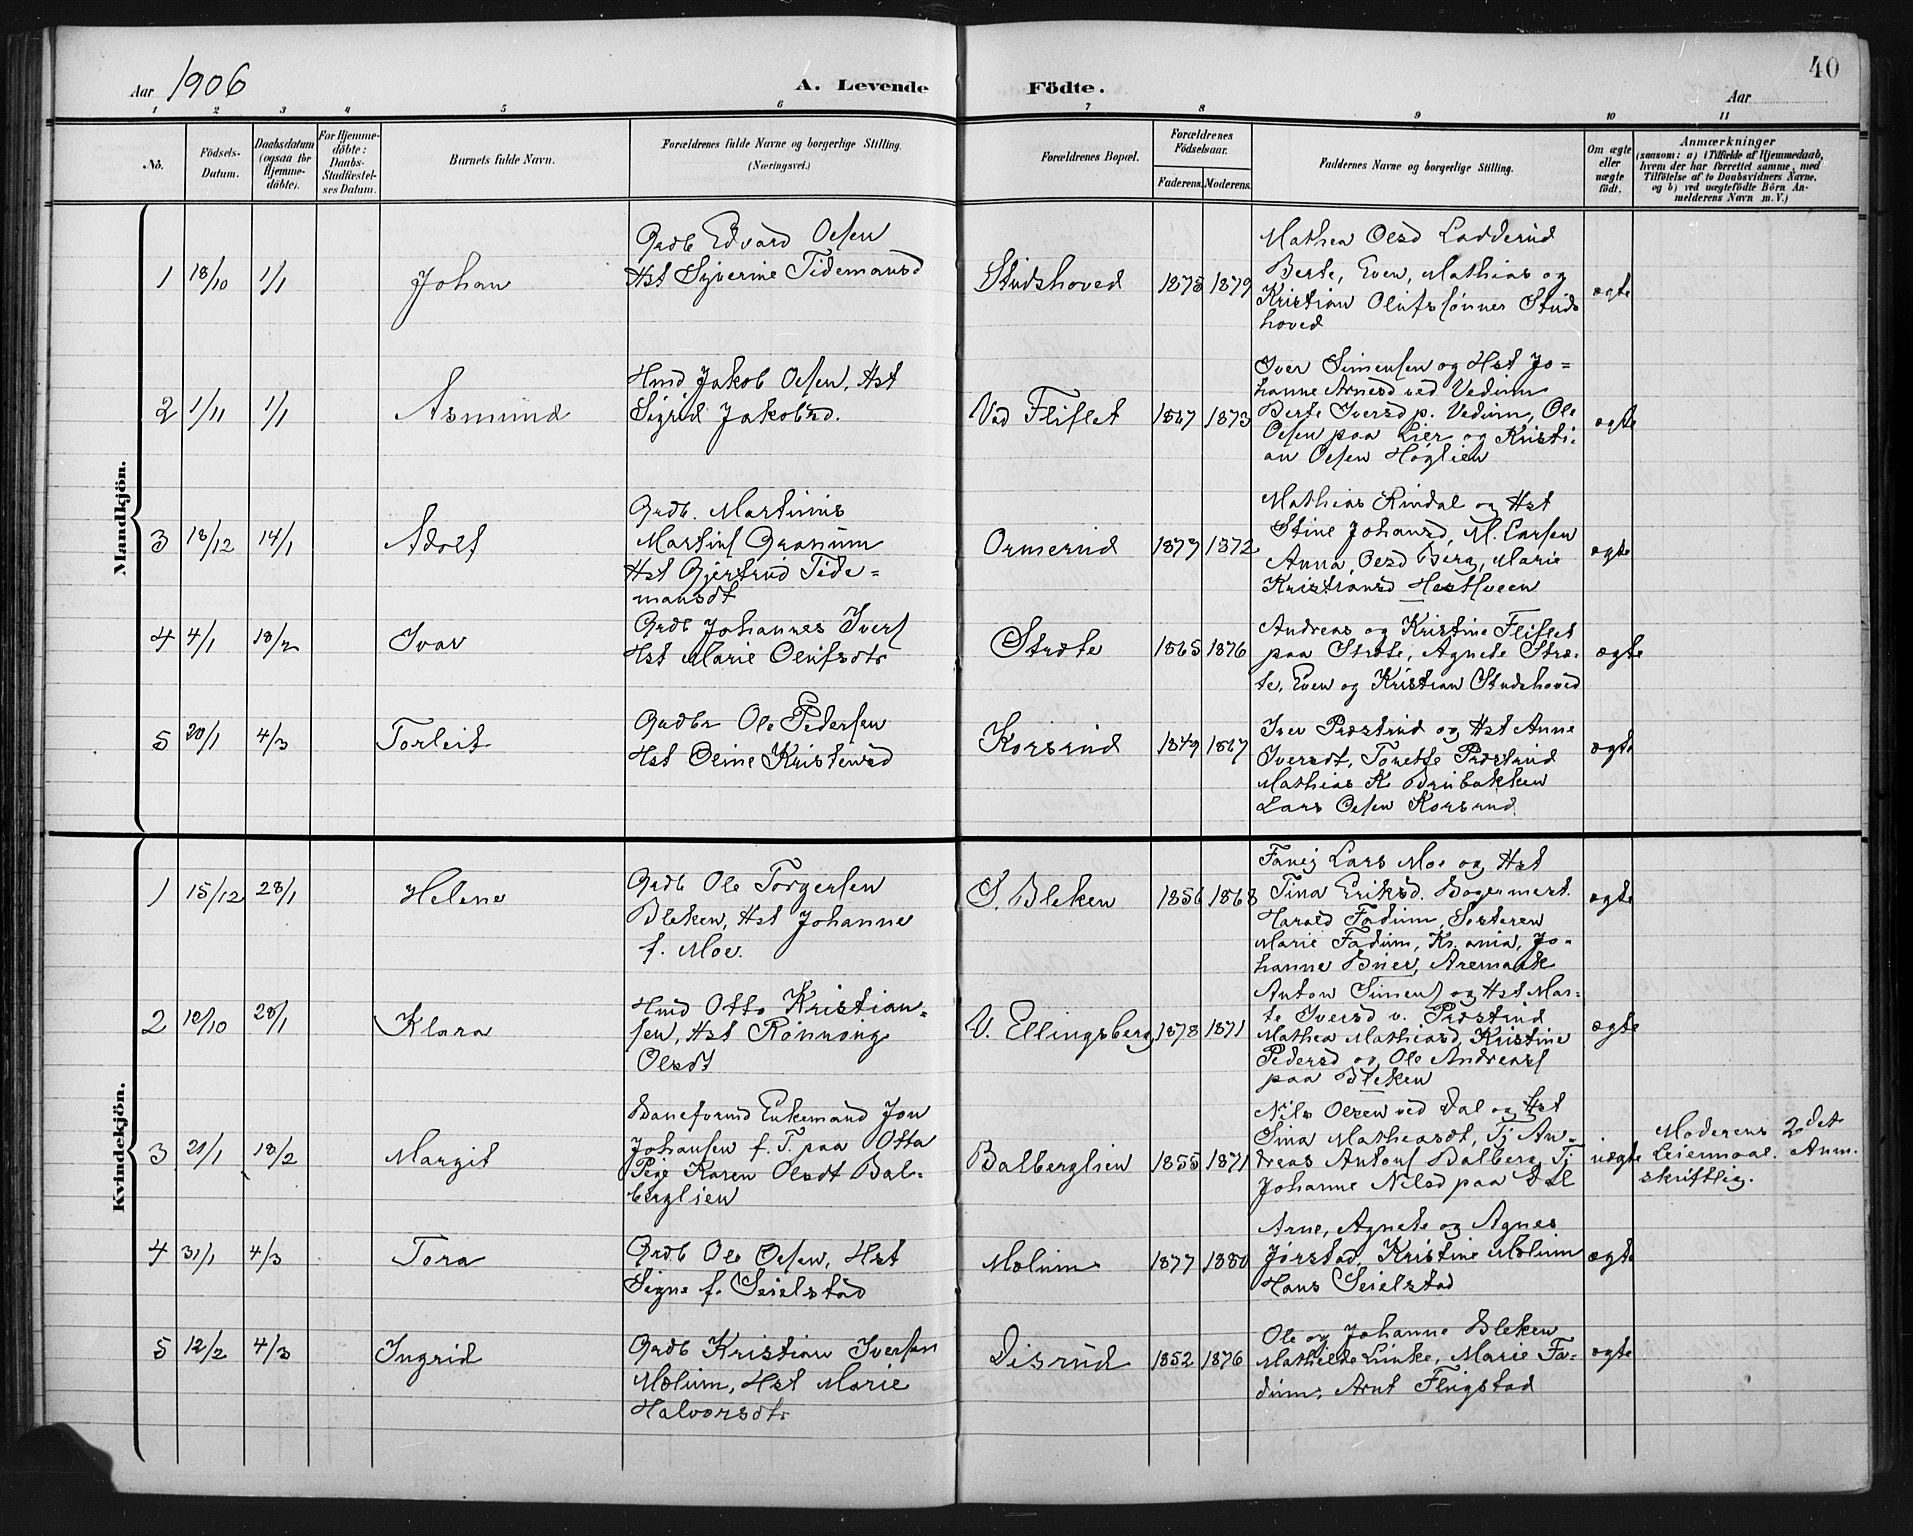 40
Aar 1906
A. Levende Födte.
Aar
1 2 3 4 5 6 7 8 9 10 11
No.
Födsels-Datum.
Daabsdatum (ogsaa for Hjemme-döbte).
For Hjemme-döbte: Daabs-Stadfæstel-ses Datum.
Barnets fulde Navn.
Forældrenes fulde Navne og borgerlige Stilling. (Næringsvei.)
Forældrenes Bopæl.
Forældrenes Födselsaar.
Faderens. Moderens.
Faddernes Navne og borgerlige Stilling.
Om ægte eller uægte födt.
Anmærkninger
(saasom: a) i Tilfælde af Hjemmedaab,
hvem der har forrettet samme, med
Tilföielse af to Daabsvidners Navne,
og b) ved uægtefödte Börn An-
melderens Navn m. V.)
Mandkjön.
1 18/10 1/1 Johan
Grdb Edvard Olsen
Hst Syverine Tidemansd
Studshoved 1878 1879
Mathea Olsd Ladderud
Berte, Even, Mathias og
Kristian Olufssønner Studs
hoved
ægte
2 1/11 1/1 Asmund
Hmd Jakob Olsen, Hst
Sigrid Jakobsd.
Ved Fliflet 1867 1873
Iver Simensen og Hst Jo-
hanne Arnesd ved Vedum
Berte Iversd p. Vedum, Ole
Olsen paa Lier og Kristi-
an Olsen Høglien
ægte
3 18/12 14/1 Adolf
Grdb. Martinus
Martins Granum
Hst Gjertrud Tide-
mansdt
Ormerud 1873 1872
Mathias Rindal og Hst
Stine Johansd, M. Larsen
Anna Olsd Berg, Marie
Kristiansd Hesthveen
ægte
4 4/1 18/2 Ivar
Grdb Johannes Ivers
Hst Marie Olufsdtr
Stræte 1865 1876
Andreas og Kristine Fliflet
paa Stræte, Agnete Stræ-
te, Even og Kristian Studshoved
ægte
5 20/1 4/3 Torleif
Grdbr Ole Pedersen
Hst Oline Kristensd
Korsrud 1849 1867
Iver Præstrud og Hst Anne
Iversdt, Tonette Præstrud
Mathias K. Brubakken
Lars Olsen Korsrud
ægte
Kvindekjön.
1 15/12 28/1 Helene
Grdb Ole Torgersen
Bleken, Hst Johanne
f. Moe.
S. Bleken 1856 1868
Lars Moe og Hst
Tina Eriksd. Bogermest.
Harald Fadum, Søsteren
Marie Fadum, Kr.ania, Jo-
hanne Buer, Aremark
ægte
2 18/10 28/1 Klara
Hmd Otto Kristian-
sen, Hst Rønnøug
Olsdt
V. Ellingsberg 1878 1871
Anton Simens og Hst Mar-
te Iversd v. Præstrud
Mathea Mathiasd, Kristine
Pedersd og Ole Andreass
paa Bleken
ægte
3 21/1 18/2 Margit
Baneformd Enkemand Jon
Johansen f. T. paa Otta
Pige Karen Olsdt Bal-
berglien
Balberglien 1855 1871
Nils Olsen ved Dal og Hst
Sina Mathiasdt, Tj An-
dreas Antons Balberg, Tj
Johanne Nilsd paa Dal
uægte
Moderens 2det
Leiermaal. Anm.
skriftlig.
4 31/1 4/3 Tora
Grdb Ole Olsen, Hst
Signe f. Seielstad
Mælum 1877 1880
Arne, Agnete og Agnes
Jørstad, Kristine Mælum
Hans Seielstad
ægte
5 12/2 4/3 Ingrid
Grdb Kristian Iversen
Mælum, Hst Marie
Halvorsdtr
Disrud 1852 1876
Ole og Johanne Bleken
Mathilde Linke, Marie Fa-
dum, Arnt Flugstad
ægte